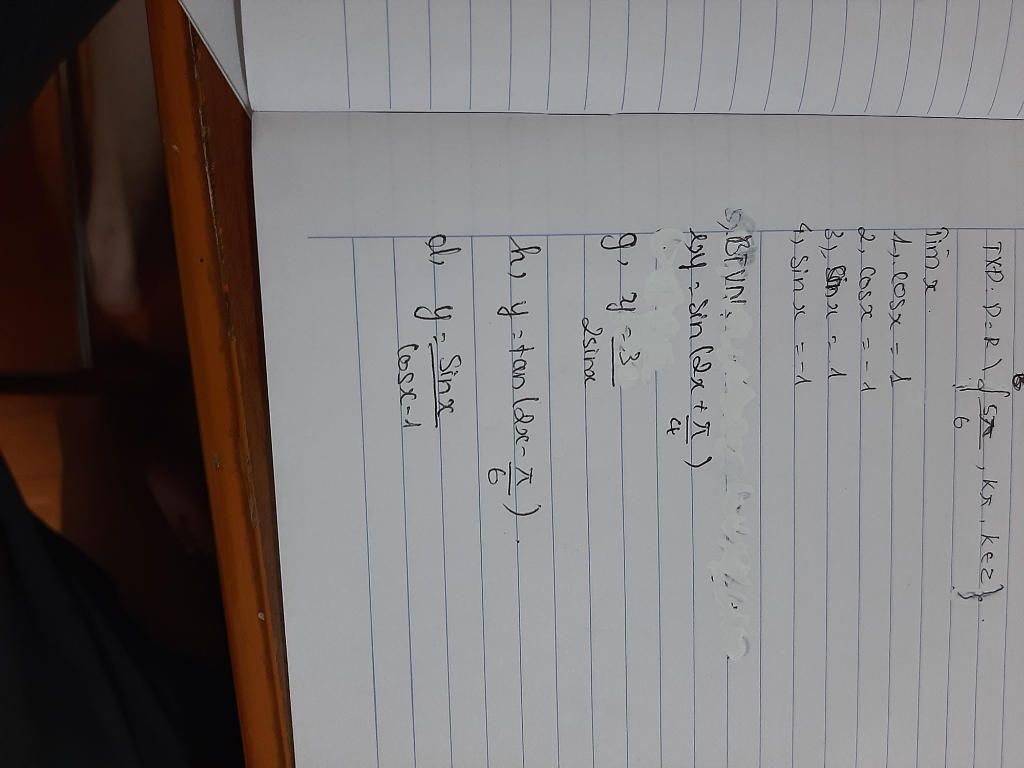 TXĐ: D = R \ { 5π/6 , kπ, k∈Z}.
Tìm x.
1, cosx = 1
2, cosx = -1
3, sinx = 1
4, sinx = -1
5, BTVN:
y = sin (2x + π/4)
g, y = 3/2sinx
h, y = tan (2x - π/6).
d, y = sinx/cosx-1